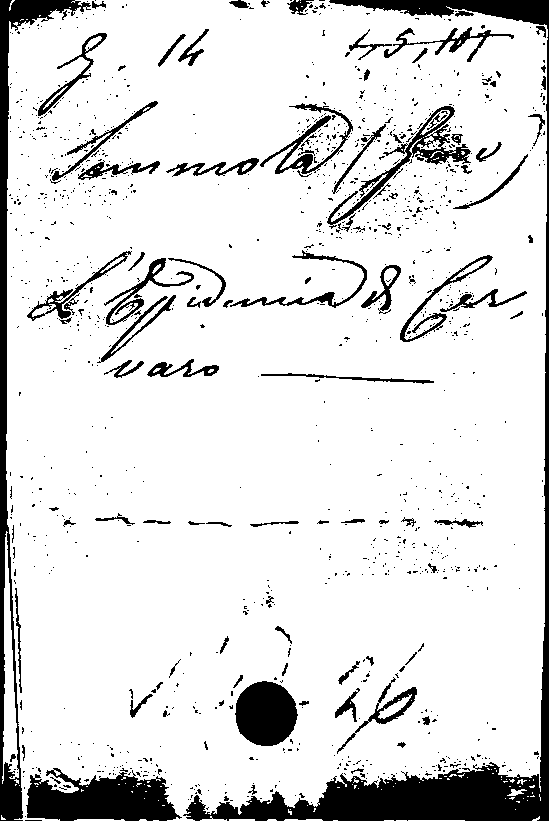 G. 14 1,5,101
Semmola (Giov)
L'Epidemia di Cer,
varo
26